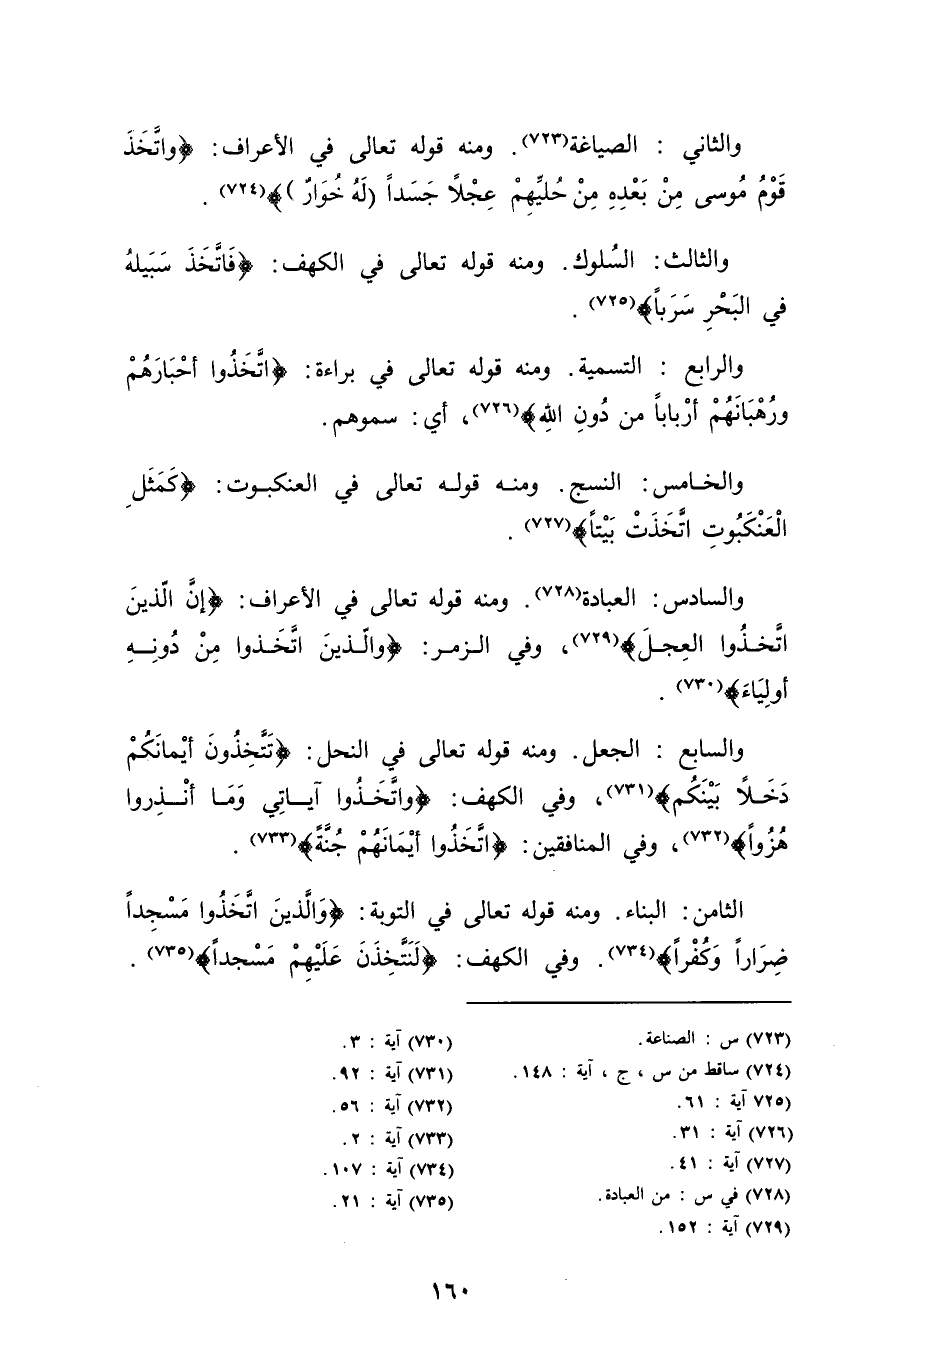 والثاني : الصياغة(٧٢٣). ومنه قوله تعالى في الأعراف: ﴿واتَّخَذَ
قَوْمُ مُوسى مِنْ بَعْدِهِ مِنْ حُليِّهِمْ عِجْلًا جَسَداً (لَهُ خُوَارٌ )﴾(٧٢٤) .
والثالث: السُلوك. ومنه قوله تعالى في الكهف: ﴿فَاتَّخَذَ سَبَيلهُ
في البَحْرِ سَرَباً﴾(٧٢٥) .
والرابع : التسمية. ومنه قوله تعالى في براءة: ﴿اتَّخَذُوا أحْبَارَهُمْ
ورُهْبَانَهُمْ أرْباباً من دُونِ اللهِ﴾(٧٢٦)، أي: سموهم.
والخامس: النسج. ومنه قوله تعالى في العنكبوت: ﴿كَمَثَلِ
الْعَنْكَبُوتِ اتَّخَذَتْ بَيْتاً﴾(٧٢٧) .
والسادس: العبادة(٧٢٨). ومنه قوله تعالى في الأعراف: ﴿إنَّ الّذينَ
اتَّخذُوا العِجلَ﴾(٧٢٩)، وفي الزمر: ﴿والّذينَ اتَّخَذوا مِنْ دُونِهِ
أولِيَاءَ﴾(٧٣٠) .
والسابع : الجعل. ومنه قوله تعالى في النحل: ﴿تَتَّخِذُونَ أيْمانَكُمْ
دَخَلًا بَيْنَكُم﴾(٧٣١)، وفي الكهف: ﴿واتَّخَذُوا آياتِي وَمَا أنْذِروا
هُزُواً﴾(٧٣٢)، وفي المنافقين: ﴿اتَّخَذُوا أيْمَانَهُمْ جُنَّةً﴾(٧٣٣) .
الثامن: البناء. ومنه قوله تعالى في التوبة: ﴿وَالَّذينَ اتَّخَذُوا مَسْجِداً
ضِرَاراً وَكُفْراً﴾(٧٣٤). وفي الكهف: ﴿لَنَتَّخِذَنَ عَلَيْهِمْ مَسْجداً﴾(٧٣٥) .
(٧٢٣) س : الصناعة.
(٧٢٤) ساقط من س ، ج ، آية : ١٤٨.
(٧٢٥ آية : ٦١.
(٧٢٦) آية : ٣١.
(٧٢٧) آية : ٤١.
(٧٢٨) في س : من العبادة.
(٧٢٩) آية : ١٥٢.
(٧٣٠) آية : ٣.
(٧٣١) آية : ٩٢.
(٧٣٢) آية : ٥٦.
(٧٣٣) آية : ٢.
(٧٣٤) آية : ١٠٧.
(٧٣٥) آية : ٢١.
١٦٠